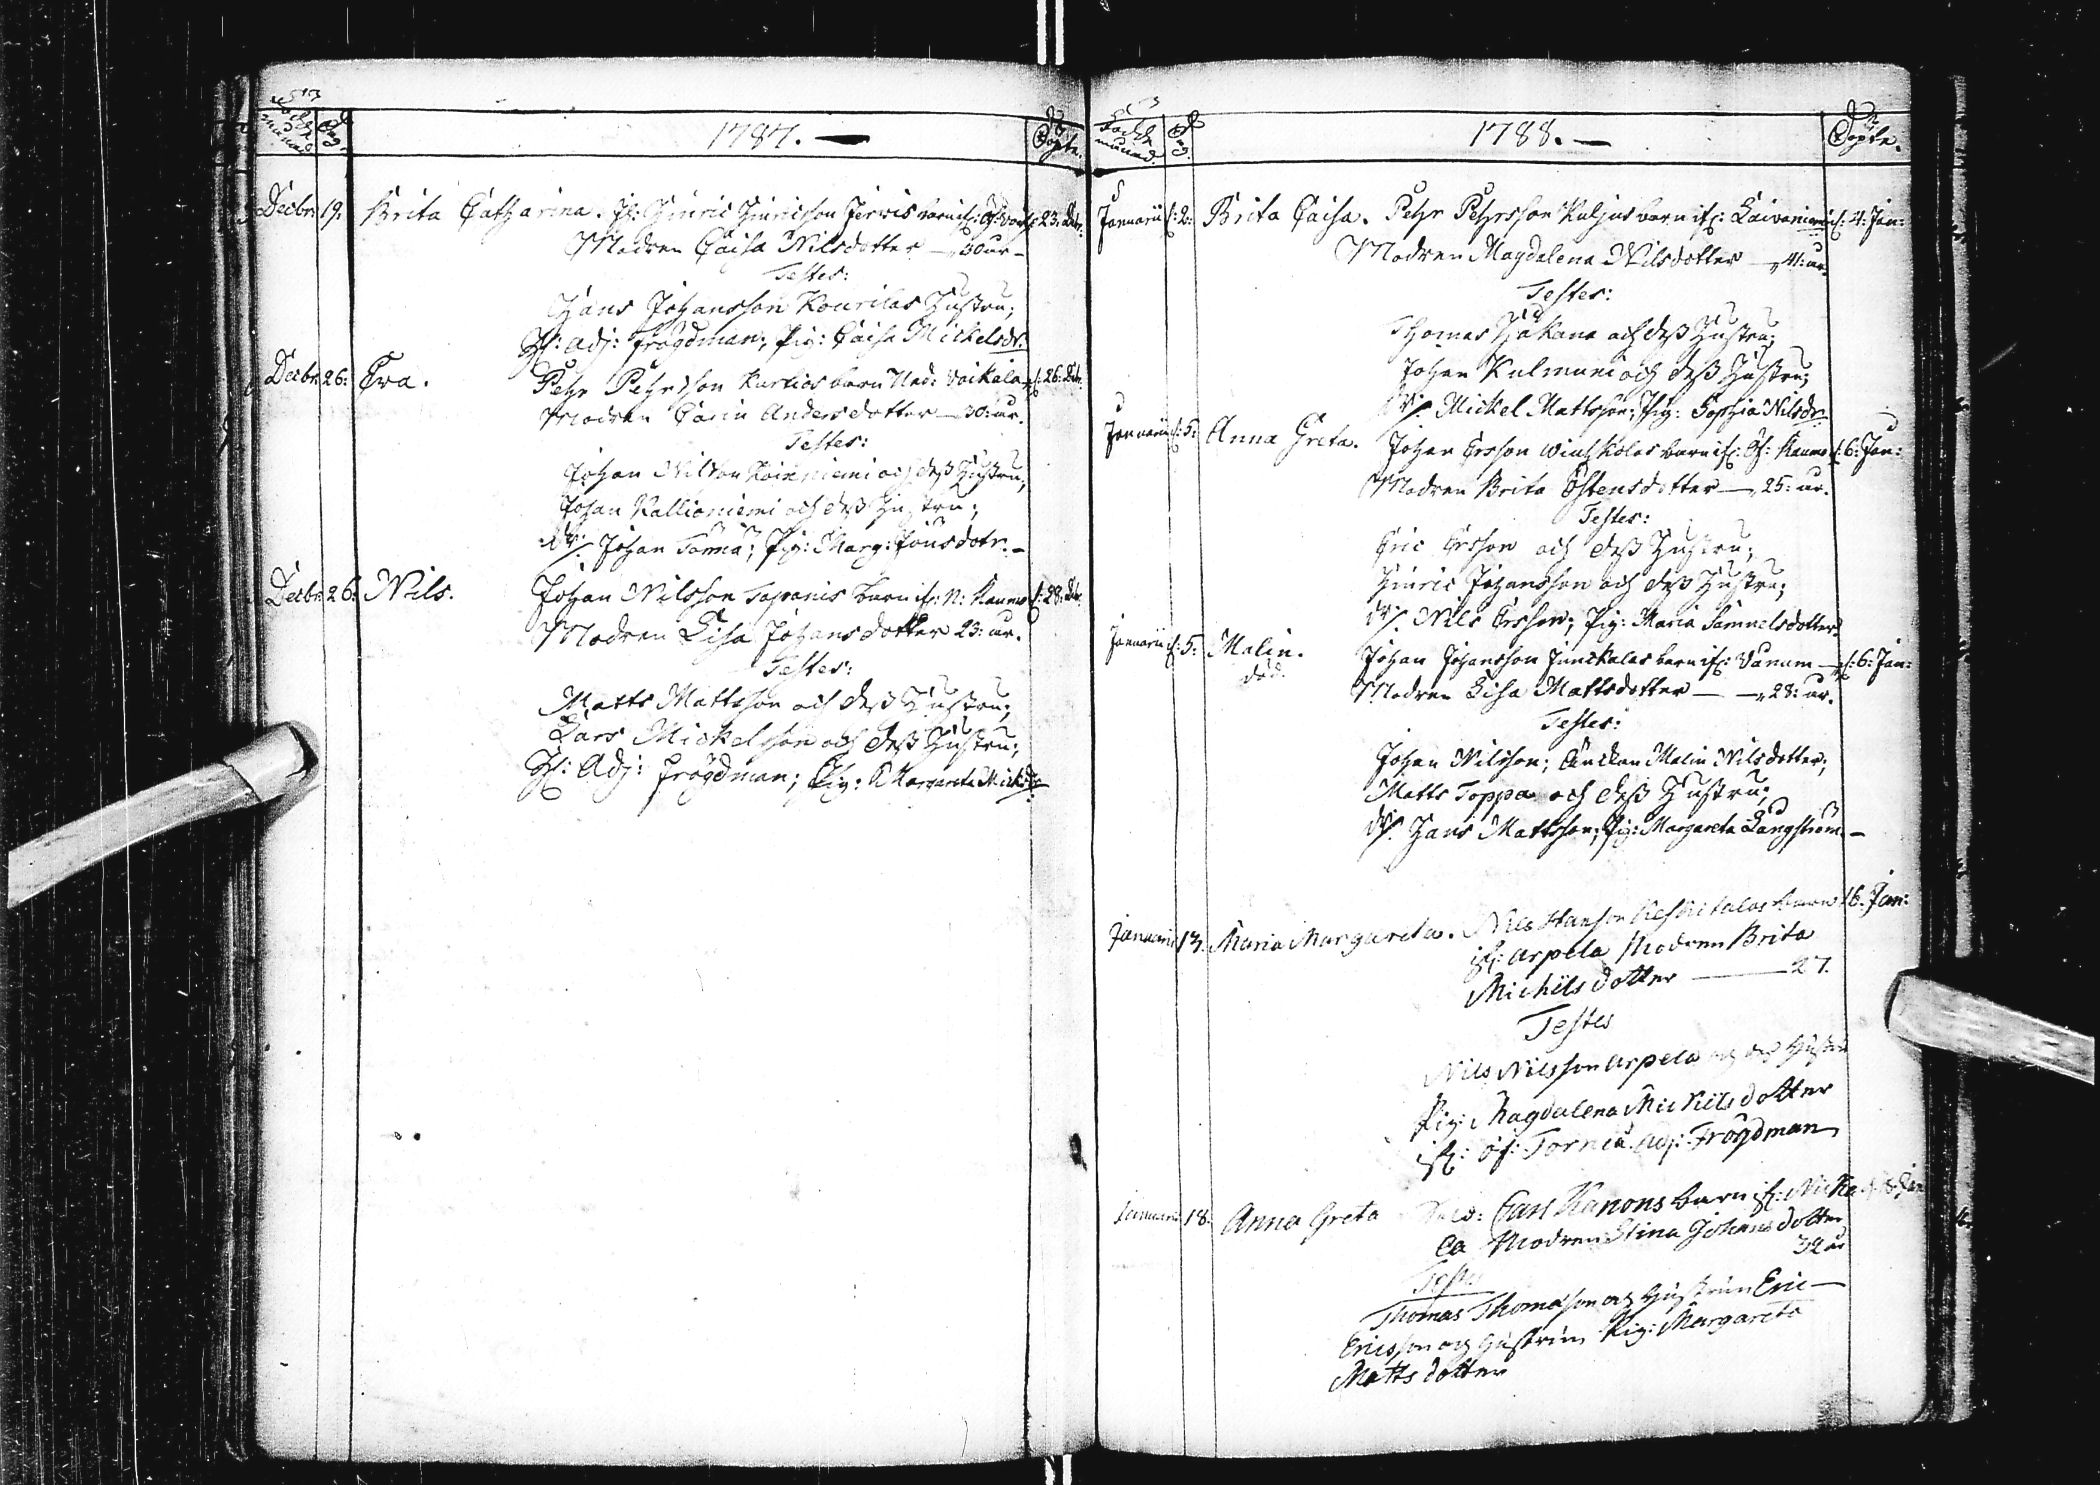 1787. —
Döpte.
Decbr: 19. Brita Catharina. Hinric Hinricsson Jerwis barn 23: Dbr:
Modren Caisa Nilsdotter — 30 år –
Testes:
Hans Johansson Kourilas Hustru;
Adj: Frögdman; Pig: Caisa Mickelsdr:
Decbr: 26: Eva. Petr Petrsson Kurkios barn Ned: Voikala 26: Dbr:
Modren Carin Andersdotter — 30: år.
Testes:
Johan Nilsson Koinniemi och dess Hustru;
Johan Kallioniemi och dess Hustru;
Dr: Johan Tornia; Pig: Marg: Jönsdotr. –
Decbr: 26: Nils. Johan Nilsson Tapanis barn if: N: Raumo d: 28: Dbr.
Modren Lisa Johansdotter 23: år.
Testes:
Matts Mattsson och dess Hustru;
Lars Mickelsson och dess Hustru;
Adj: Frögdman; Pig: Margareta Mickelsdr:
månad. 1788. — Döpte.
Januarii d: 2: Brita Caisa. Petr Petrsson Kuljus barn if: Laivaniemi d: 4: Jan:
Modren Magdalena Nilsdotter — 41: år.
Testes:
Thomas Hakana och dess Hustru;
Johan Kulmuni och dess Hustru;
Dr: Mickel Mattsson; Pig: Sophia Nilsdr:
Januarii d: 5: Anna Greta. Johan Ersson barn if: Öf: Raumo d: 6: Jan:
Modren Brita Östensdotter — 25: år.
Testes:
Eric Ersson och dess Hustru;
Hinric Johansson och dess Hustru;
Dr: Nils Ersson; Pig: Maria Samuelsdotter
Januarii d: 5: Malin. Johan Johansson Junckalas barn if: Vanum — d: 6: Jan:
död. Modren Lisa Mattsdotter — 28: år.
Testes:
Johan Nilsson; Änckan Malin Nilsdotter;
Matts Toppa och dess Hustru;
Dr: Hans Mattsson; Pig: Margareta Långström. –
Januarii 13. Maria Margareta. Nils Hansson Keskitalos barn 16. Jan:
if: Arpela Modren Brita
Michilsdotter — 27.
Testes
Nils Nilsson Arpela och dess Hustru
Pig: Magdalena Mickilsdotter
if: Öf: Torneå. Adj: Frögdman
Januarii 18. Anna Greta Carl Kanons barn if: Nicka d: 18: Jan
la Modren Stina Johansdotter
32 år
Testes
Thomas Thomasson och Hustrun Eric
Ericsson och Hustrun Pig: Margareta
Mattsdotter